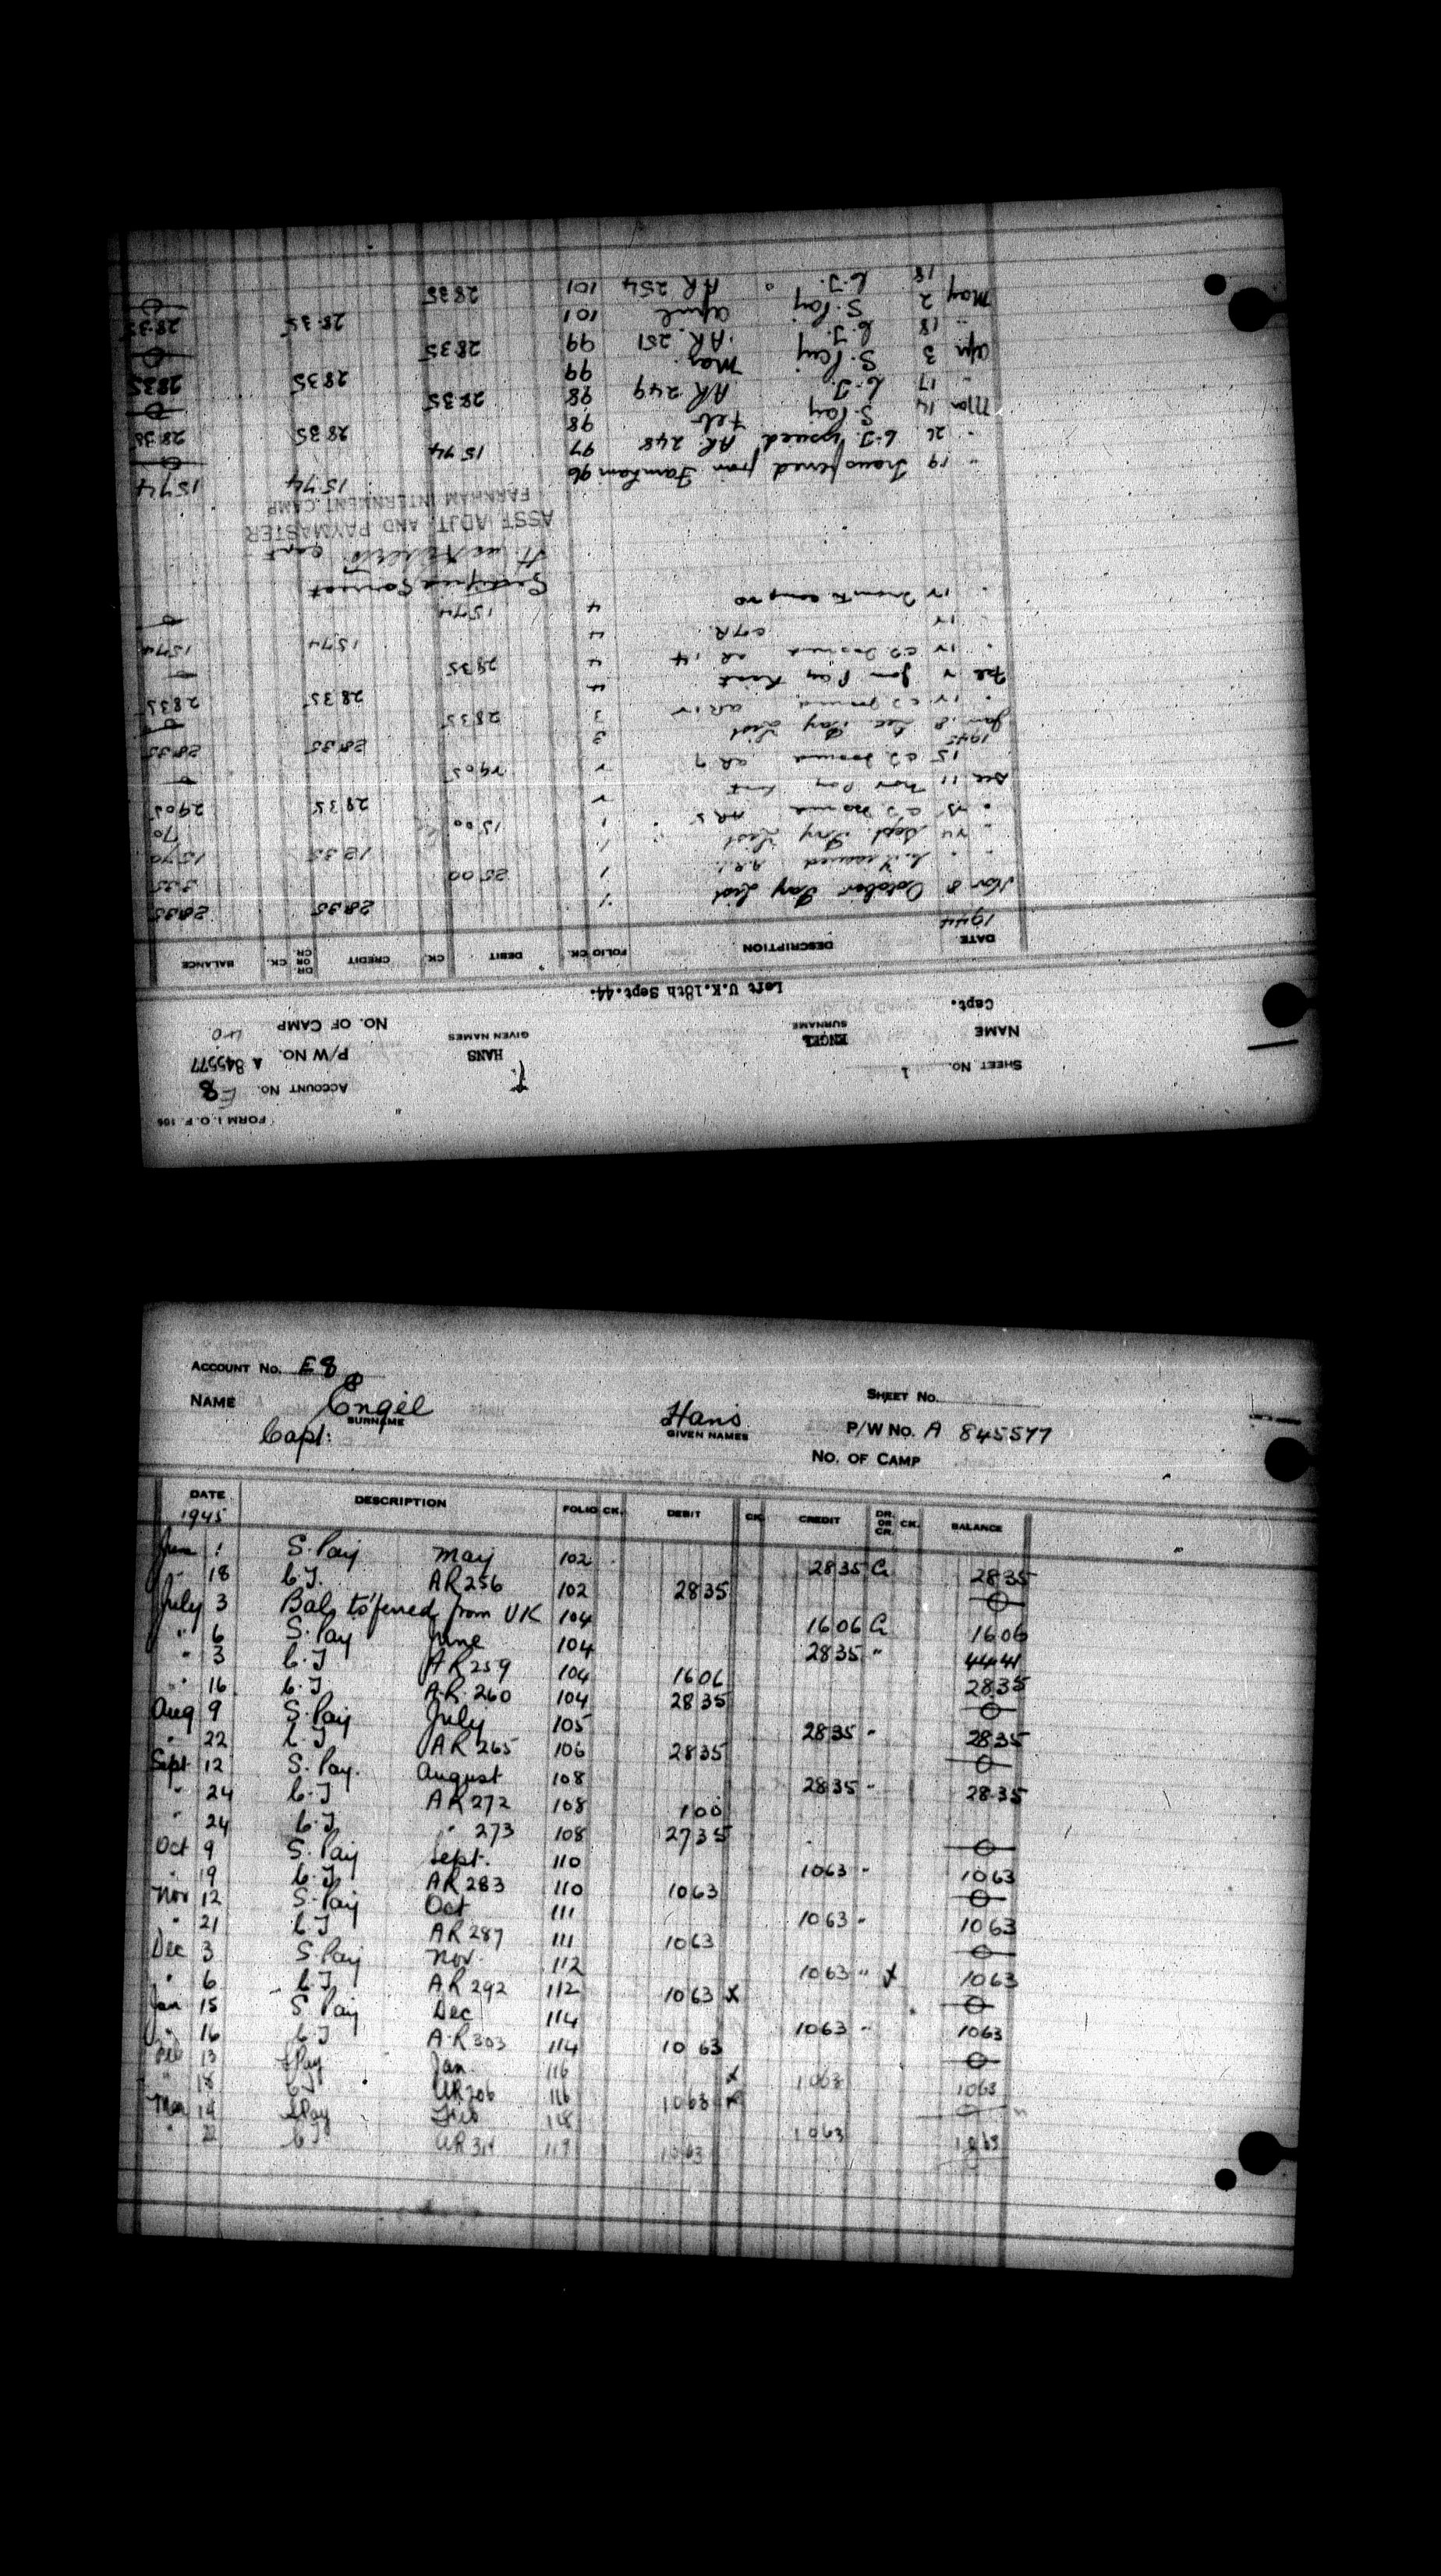 FORM I.O.F. 106
SHEET No. 1 ACCOUNT No. E8
NAME ENGEL HANS P/W No. A 845577
SURNAME GIVEN NAMES
Capt. NO. OF CAMP 40
Left U.K.18th Sept.44.
DATE DESCRIPTION FOLIO CK. DEBIT CK. CREDIT DR. OR CR. CK. BALANCE
1944
Nov 8 October Pay List 1 2835 2835
" " issued A.R.1 1 2500 335
" 24 Sept. Pay List 1 1235 1570
" 25 C.T. issued AR 5 1 1500 70
Dec 11 Nov Pay List 2 2835 2905
15 C.T. issued AR 9 2 2905
1945
Jan 8 Dec Pay List 3 2835 2835
" 12 C.T. issued AR 12 3 2835
Feb 2 Jan Pay List 4 2835 2835
" 12 C.T. issued AR 14 4 2835
12 4 1574 1574
" 12 Trans to Camp 20 4 1574
Certified Correct
Capt
ASST ADJT. AND PAYMASTER
FARNHAM INTERNMENT CAMP
" 19 Transferred from Farnham 96 1574 1574
" 26 C.T. issued AR. 248 97 1574
Mar 14 S. Pay Feb 98 2835 2835
" 17 C.T. AR 249 98 2835
Apr 3 S. Pay Mar. 99 2835 2835
" 18 C.T. AR. 251 99 2835
May 2 S. Pay April 101 2835 2835
18 C.T. AR 254 101 2835
ACCOUNT No. E8 SHEET No.
NAME Engel Hans P/W No. A 845577
SURNAME GIVEN NAMES
Capt: NO. OF CAMP
DATE DESCRIPTION FOLIO CK. DEBIT CK. CREDIT DR. OR CR. CK. BALANCE
1945
June 1 S. Pay May 102 2835 2835
" 18 C.T. AR 256 102 2835
July 3 Bal. from UK 104 1606 1606
" 6 S. Pay June 104 2835 " 4441
" 3 C.T AR 259 104 1606 2835
" 16 C.T A.R. 260 104 2835
Aug 9 S. Pay July 105 2835 " 2835
" 22 C.T AR 265 106 2835
Sept 12 S. Pay. August 108 2835 " 2835
" 24 C.T AR 272 108 100
" 24 C.T " 273 108 2735
Oct 9 S. Pay Sept. 110 1063 " 1063
" 19 C.T. AR 283 110 1063
Nov 12 S. Pay Oct 111 1063 " 1063
" 21 C.T AR 287 111 1063
Dec 3 S. Pay Nov. 112 1063 " 1063
" 6 C.T AR 292 112 1063
Jan 15 S Pay Dec 114 1063 " 1063
" 16 C.T A.R 303 114 1063
Feb 13 S Pay Jan 116 1063 1063
" 18 C.T 116 1063
Mar 14 S Pay Feb 118 1063 1063
" C.T 119 1063